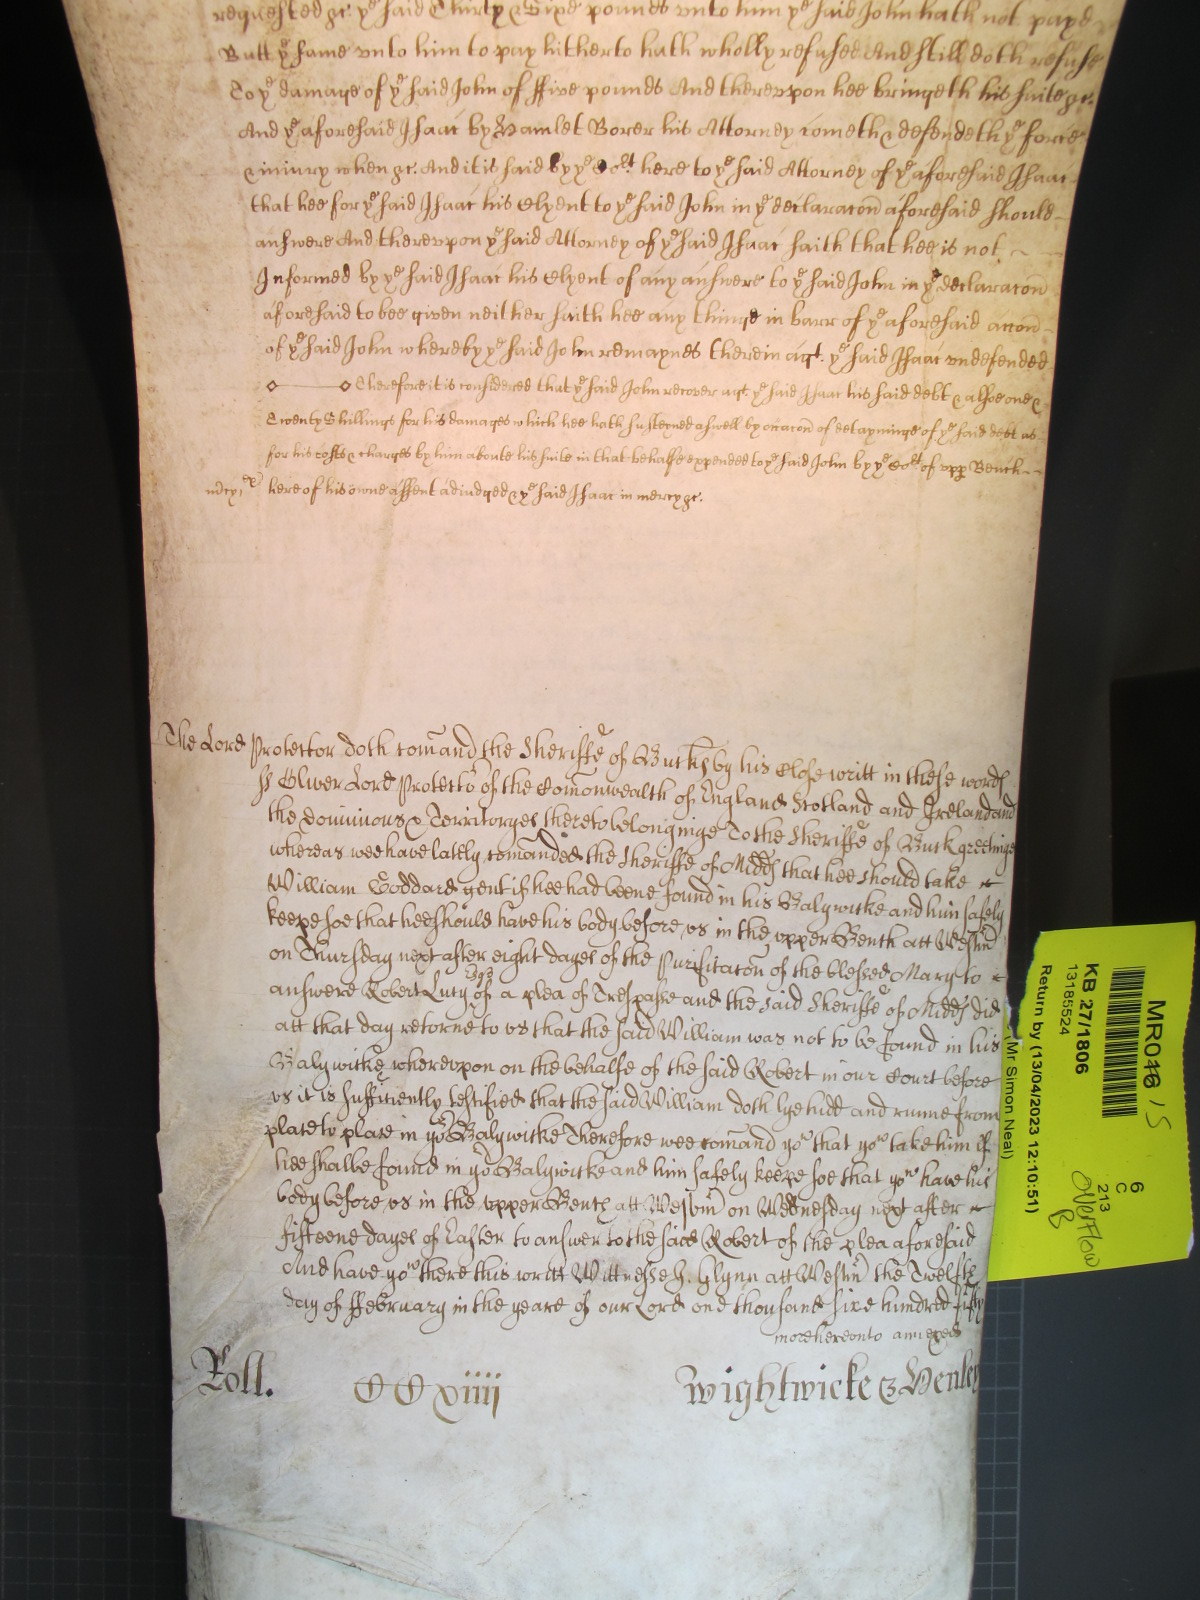 requested &c ye said Thirty & Sixe pounds vnto him ye said John hath not payd
Butt ye same vnto him to pay hitherto hath wholly refused And still doth refuse
To ye damage of ye said John of ffive pounds And therevpon hee bringeth his suite &c.
And ye aforesaid Isaac by Hamlet Borer his Attorney cometh & defendeth ye force
& iniury when &c. And it is said by ye Cort here to ye said Attorney of ye aforesaid Isaac
that hee for ye said Isaac his Clyent to ye said John in ye declaracon aforesaid should
answere And therevpon ye said Attorney of ye said Isaac saith that hee is not
Informed by ye said Isaac his Clyent of any answere to ye said John in ye declaracon
aforesaid to bee given neither saith hee any thinge in barr of ye aforesaid accon
of ye said John whereby ye said John remaynes therein agt. ye said Isaac vndefended
Therefore it is considered that ye said John recover agt. ye said Isaac his said debt & alsoe one &
Twenty Shillings for his damages which hee hath susteyned aswell by occacon of detayninge of ye said debt as
for his costs & charges by him aboute his suite in that behalfe expended to ye said John by ye Cort of vpp Bench
mcy here of his owne assent adiudged & ye said Isaac in mercy &c.
The Lord Protector doth comand the Sheriffe of Bucks by his Close writt in these words
ss Oliver Lord Protector of the Comonwealth of England Scotland and Ireland and
the dominions & Territoryes thereto belonginge To the Sheriffe of Buck greetinge
whereas wee have lately comanded the Sheriffe of Midds that hee should take
William Goddard gent if hee had beene found in his Balywicke and him safely
keepe soe that hee should have his body before vs in the vpper Bench att Westm
on Thursday next after eight dayes of the Purificacon of the blessed Mary to
answere Robert Lucy of a plea of Trespasse and the said Sheriffe of Midds did
att that day retorne to vs that the said William was not to be found in his
Balywicke wherevpon on the behalfe of the said Robert in our Court before
vs it is sufficiently testified that the said William doth lye hidd and runne from
place to place in yor Balywicke Therefore wee comand you that you take him if
hee shalbe found in yor Balywicke and him safely keepe soe that you have his
body before vs in the vpper Bench att Westm on Wednesday next after
fifteene dayes of Easter to answer to the said Robert of the plea aforesaid
And have you there this writt Wittnesse J. Glynn att Westm the Twelfth
day of ffebruary in the yeare of our Lord one thousand sixe hundred fifty
more hereonto annexed
Roll. CCxiiij Wightwicke & Henley
MR046 / S
KB 27/1806
13185524
Return by (13/04/2023 12:10:51)
Mr Simon Neal)
6
C
213
Overflow
B